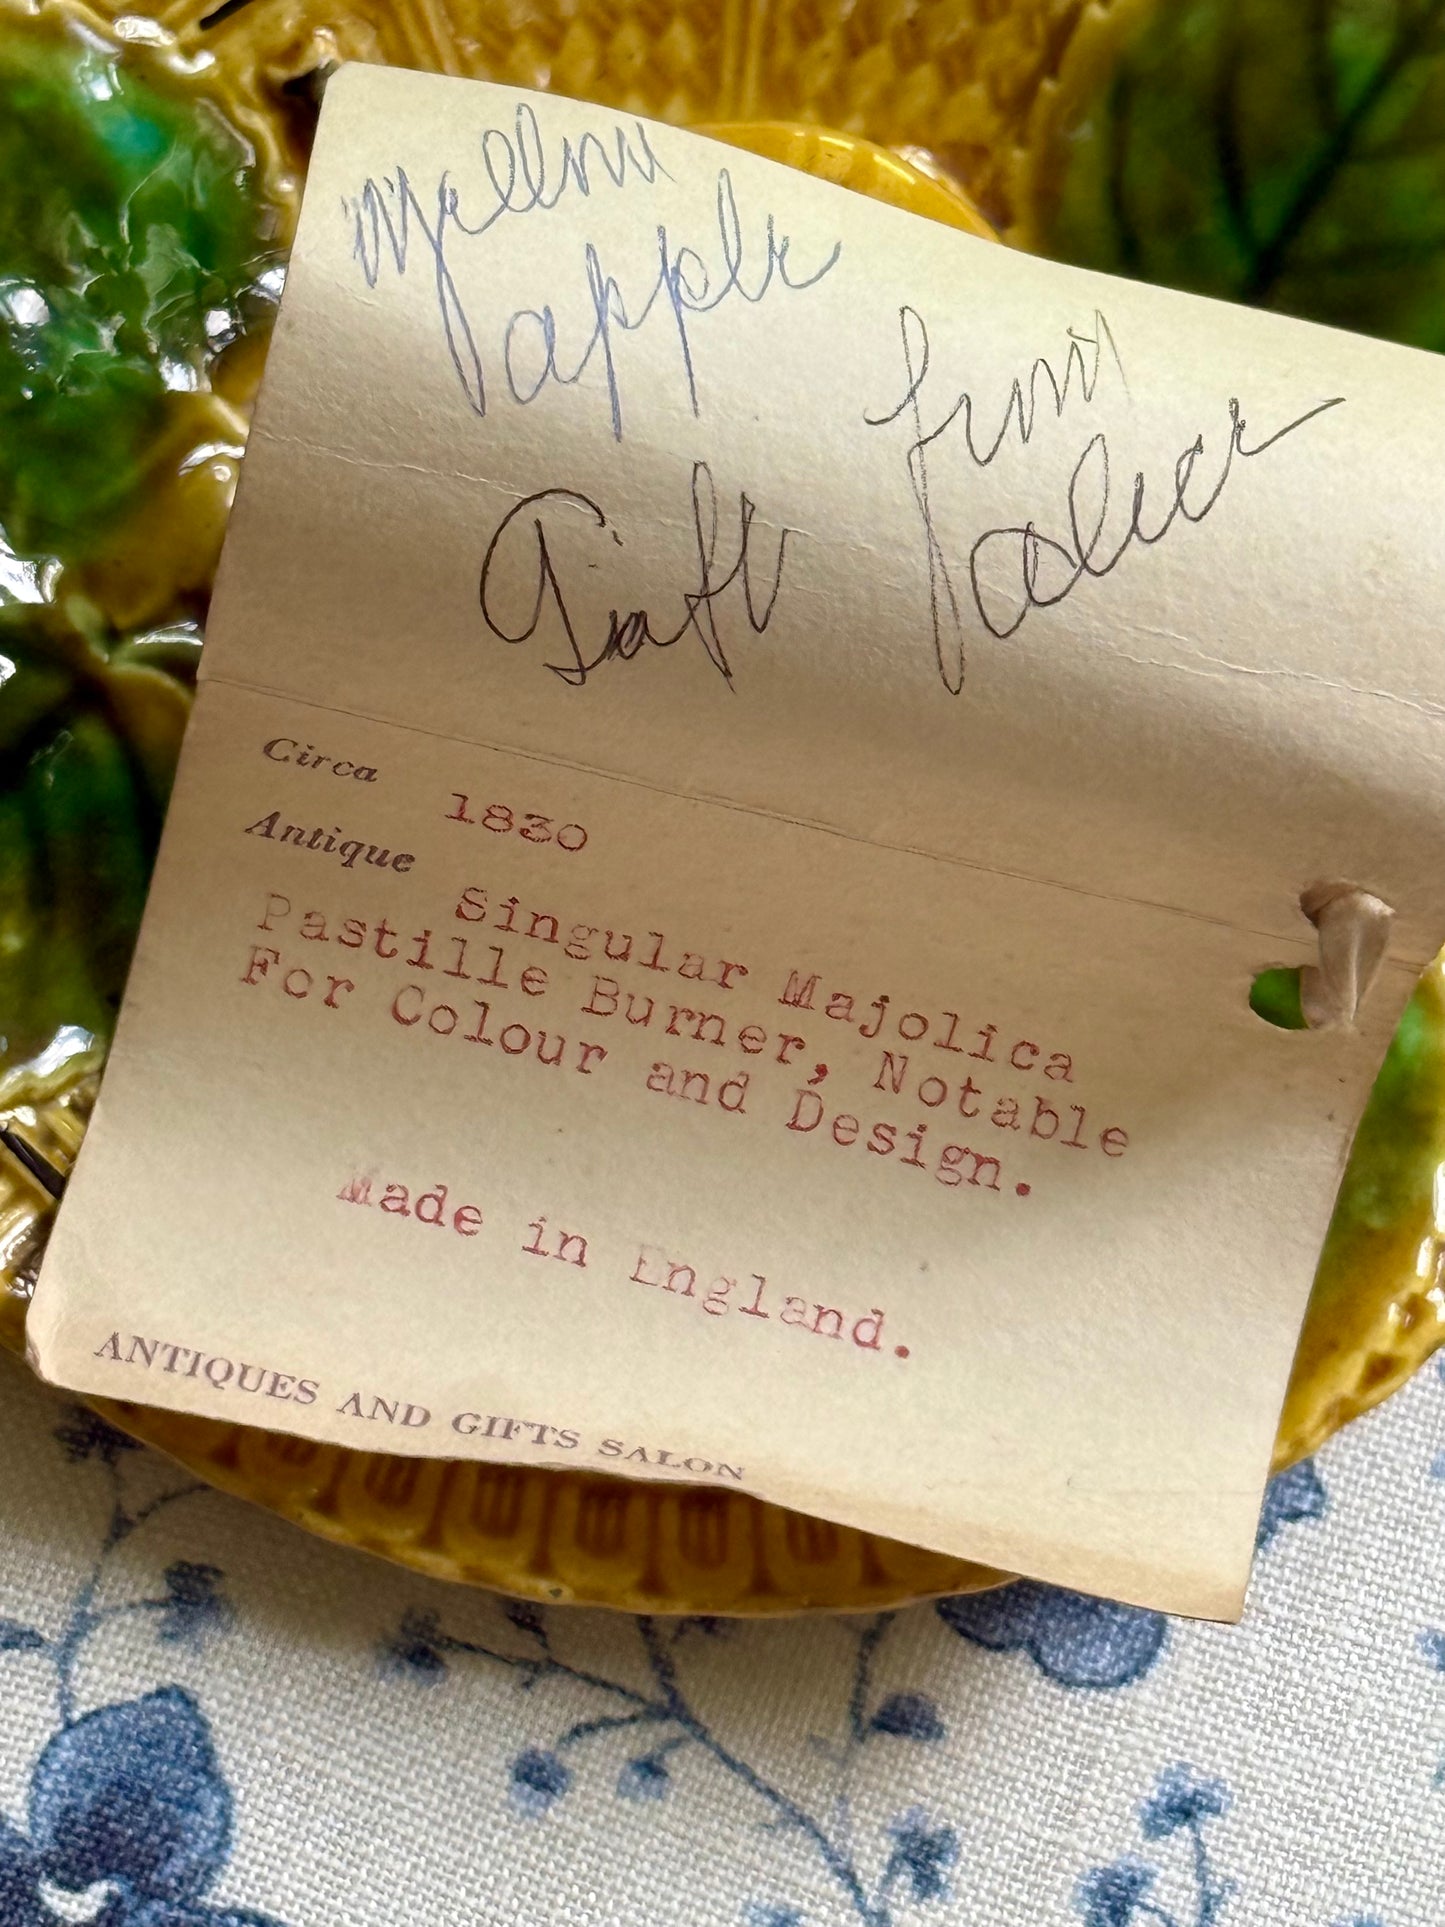 Yellow
apple
Gift from
Alice
Circa 1830
Antique Singular Majolica
Pastille Burner, Notable
For Colour and Design.
Made in England.
ANTIQUES AND GIFTS SALON